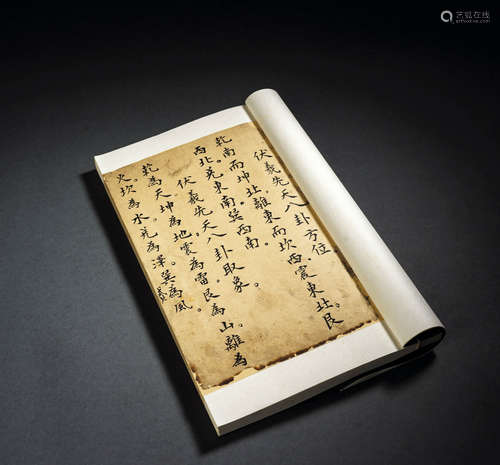 伏羲先天八卦方位
乾南而坤北離東而坎西震東北艮
西北兌東南巽西南。
伏羲先天八卦取象
乾為天坤為地震為雷艮為山。離為
火。坎為水。兌為澤。巽為風。
艺狐在线